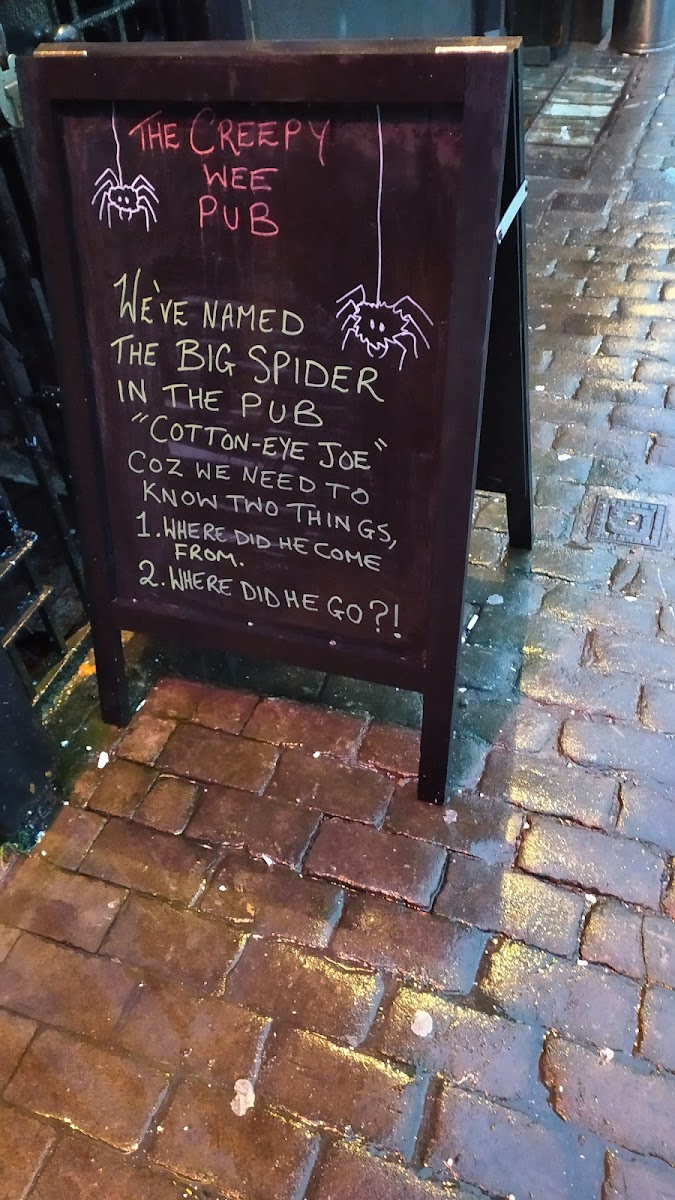 THE CREEPY
WEE
PUB
WE'VE NAMED
THE BIG SPIDER
IN THE PUB
"COTTON-EYE JOE"
COZ WE NEED TO
KNOW TWO THINGS,
1. WHERE DID HE COME
FROM.
2. WHERE DID HE GO?!